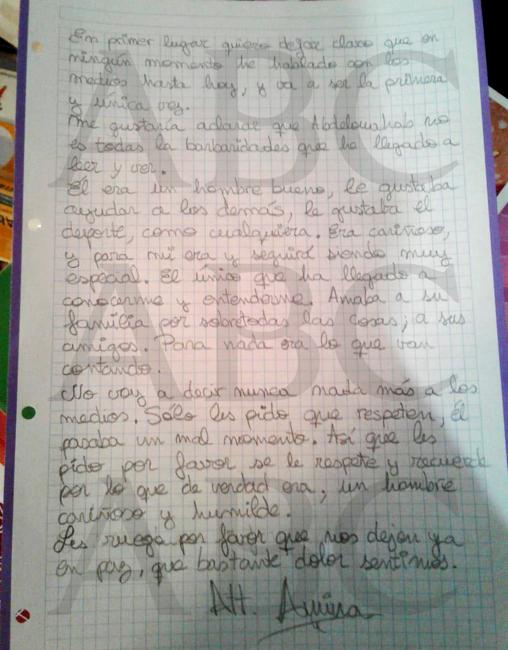 En primer lugar quiero dejar claro que en
ningún momento he hablado con los
medios hasta hoy, y va a ser la primera
y única vez.
Me gustaría aclarar que Abdelouahab no
es todas la barbaridades que he llegado a
leer y ver.
Él era un hombre bueno, le gustaba
ayudar a los demás, le gustaba el
deporte, como cualquiera. Era cariñoso,
y para mí era y seguirá siendo muy
especial. El único que ha llegado a
conocerme y entenderme. Amaba a su
familia por sobretodas las cosas, a sus
amigos. Para nada era lo que van
contando.
No voy a decir nunca nada más a los
medios. Sólo les pido que respeten, él
pasaba un mal momento. Así que les
pido por favor se le respete y recuerde
por lo que de verdad era, un hombre
cariñoso y humilde.
Les ruego por favor que nos dejen ya
en paz, que bastante dolor sentimos.
Att. Amina
ABC
ABC
ABC